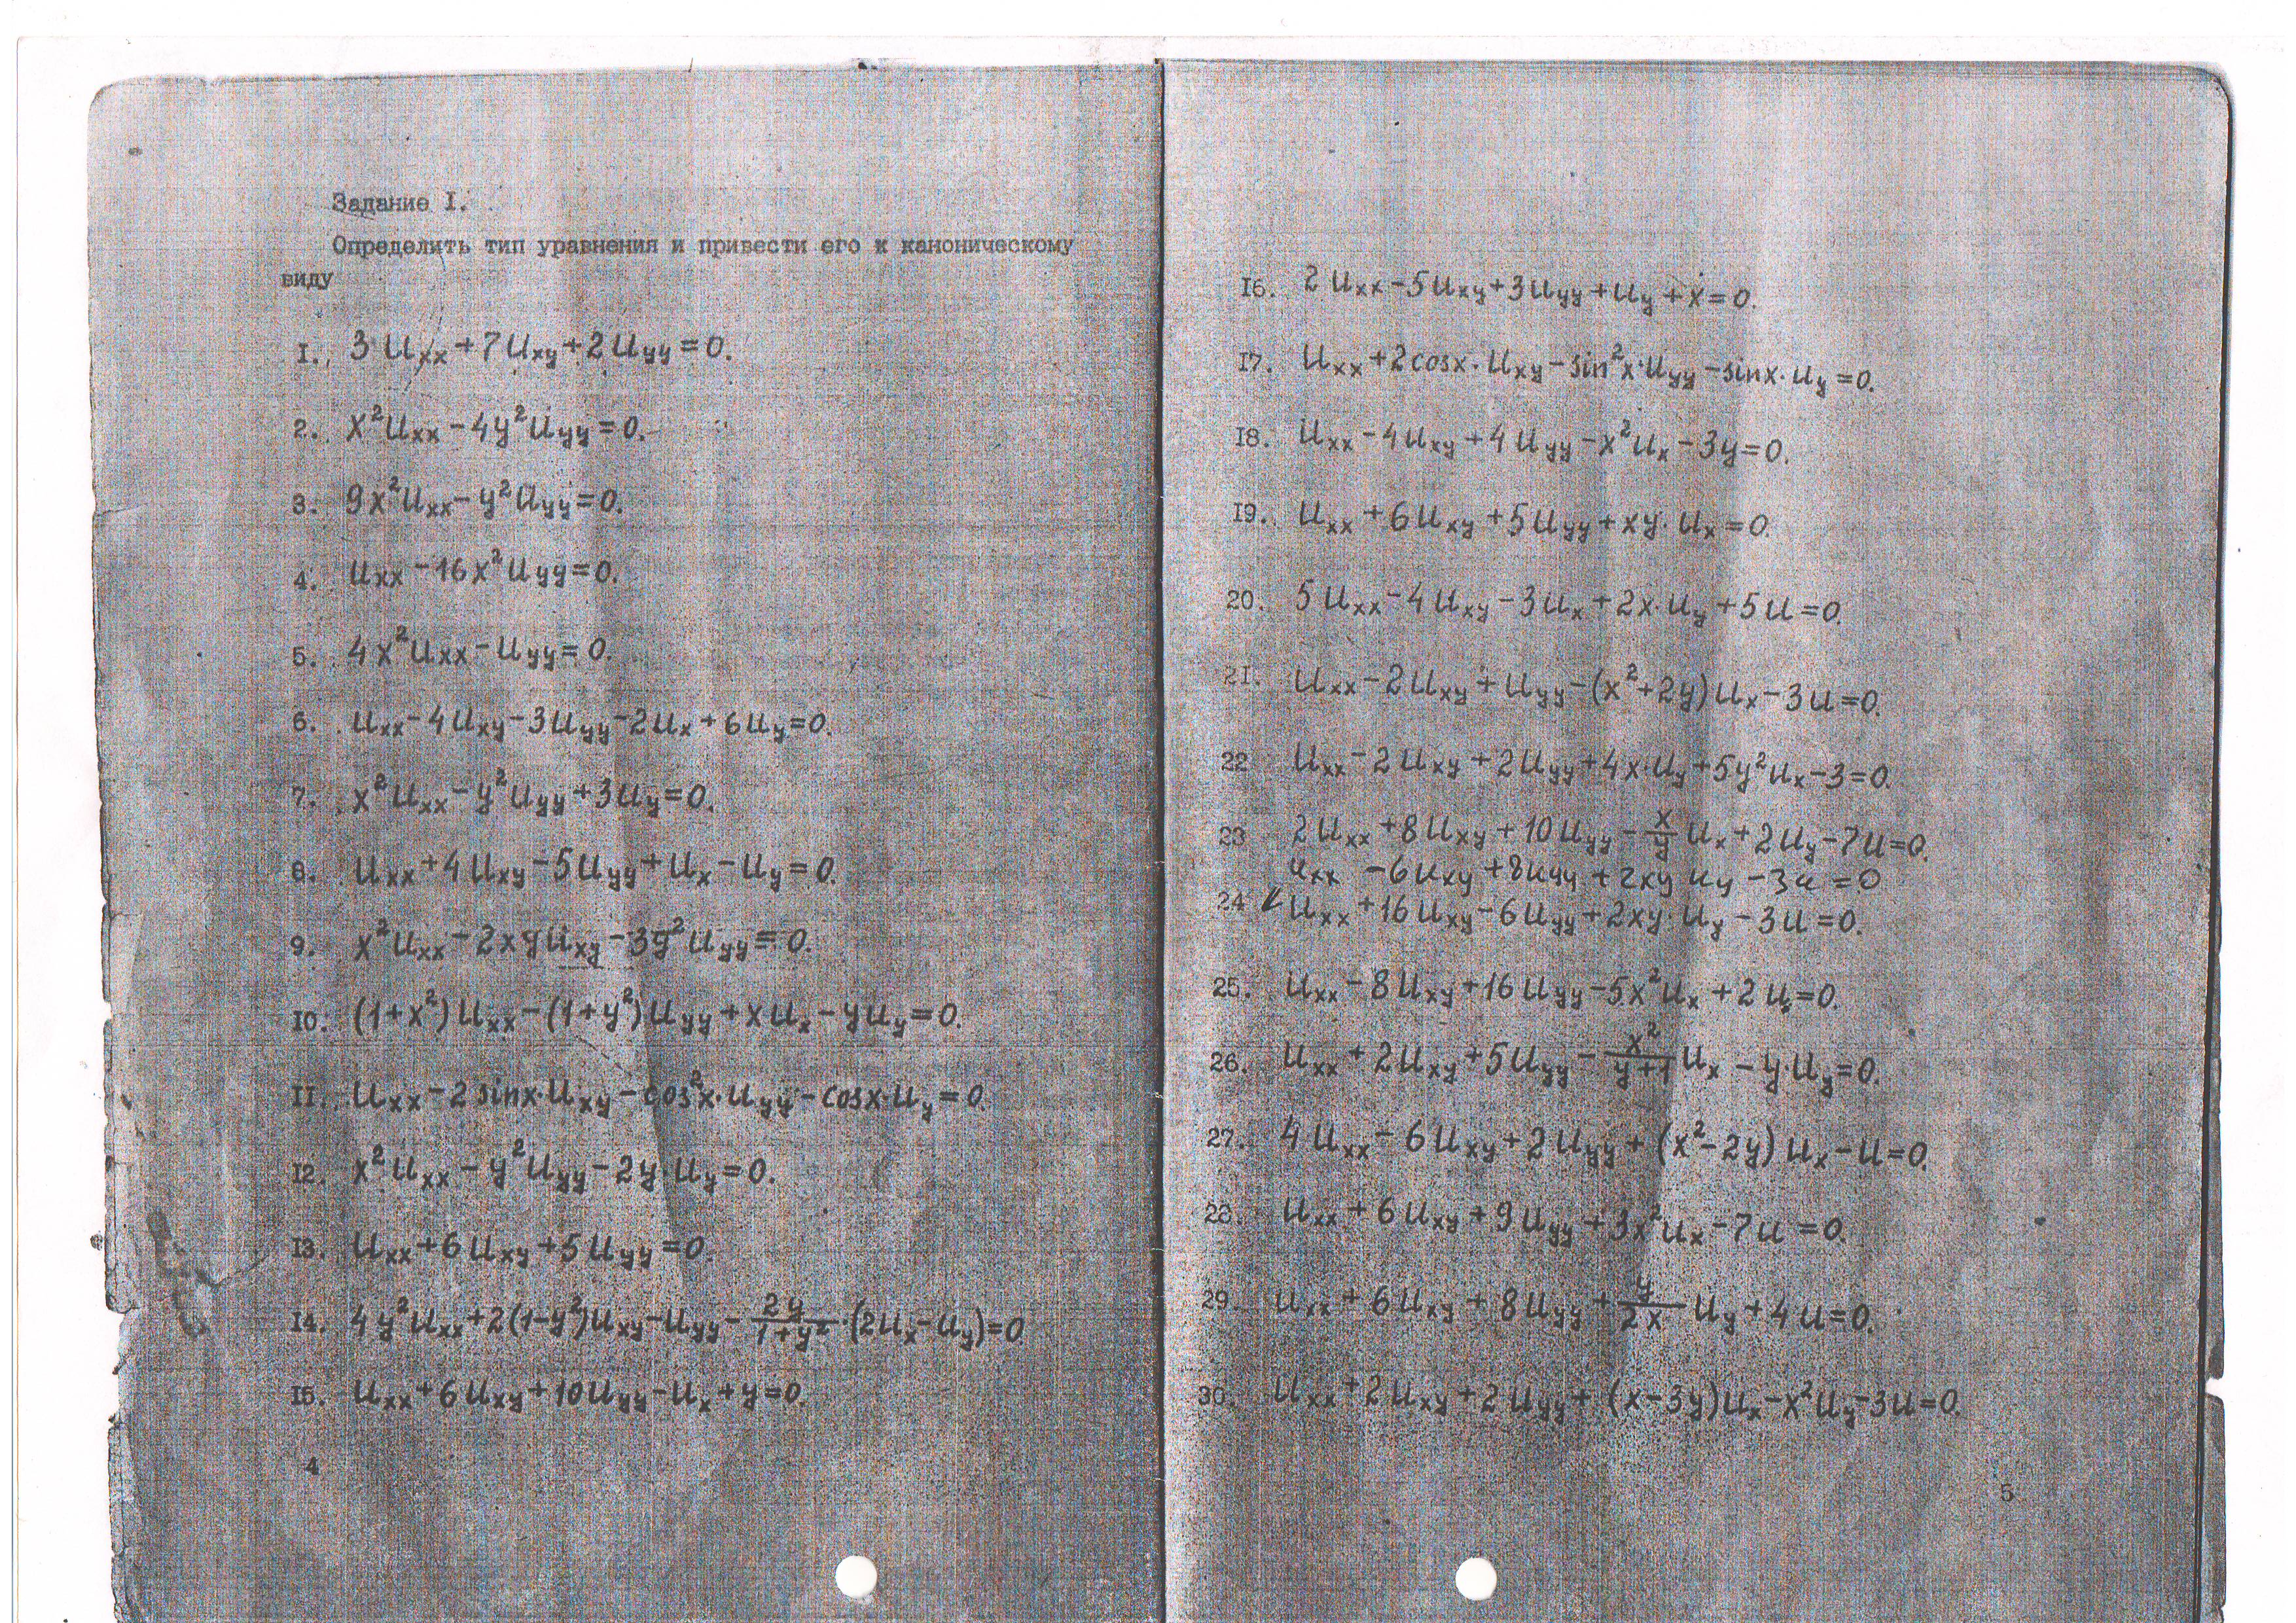 Задание I.
Определить тип уравнения и привести его к каноническому
виду
I. 3uₓₓ+7uₓᵧ+2uᵧᵧ=0.
2. x²uₓₓ-4y²uᵧᵧ=0.
3. 9x²uₓₓ-y²uᵧᵧ=0.
4. uₓₓ-16x²uᵧᵧ=0.
5. 4x²uₓₓ-uᵧᵧ=0.
6. uₓₓ-4uₓᵧ-3uᵧᵧ-2uₓ+6uᵧ=0.
7. x²uₓₓ-y²uᵧᵧ+3uᵧ=0.
8. uₓₓ+4uₓᵧ-5uᵧᵧ+uₓ-uᵧ=0.
9. x²uₓₓ-2xyuₓᵧ-3y²uᵧᵧ=0.
I0. (1+x²)uₓₓ-(1+y²)uᵧᵧ+xuₓ-yuᵧ=0.
II. uₓₓ-2sinx·uₓᵧ-cos²x·uᵧᵧ-cosx·uᵧ=0.
I2. x²uₓₓ-y²uᵧᵧ-2y·uᵧ=0.
I3. uₓₓ+6uₓᵧ+5uᵧᵧ=0.
I4. 4y²uₓₓ+2(1-y²)uₓᵧ-uᵧᵧ-2y/(1+y²)·(2uₓ-uᵧ)=0
I5. uₓₓ+6uₓᵧ+10uᵧᵧ-uₓ+y=0.
4
I6. 2uₓₓ-5uₓᵧ+3uᵧᵧ+uᵧ+x=0.
I7. uₓₓ+2cosx·uₓᵧ-sin²x·uᵧᵧ-sinx·uᵧ=0.
I8. uₓₓ-4uₓᵧ+4uᵧᵧ-x²uₓ-3y=0.
I9. uₓₓ+6uₓᵧ+5uᵧᵧ+xy·uₓ=0.
20. 5uₓₓ-4uₓᵧ-3uₓ+2x·uᵧ+5u=0.
2I. uₓₓ-2uₓᵧ+uᵧᵧ-(x²+2y)uₓ-3u=0.
22 uₓₓ-2uₓᵧ+2uᵧᵧ+4x·uᵧ+5y²uₓ-3=0.
23 2uₓₓ+8uₓᵧ+10uᵧᵧ-x/y uₓ+2uᵧ-7u=0.
uₓₓ -6uₓᵧ+8uᵧᵧ+2xy uᵧ-3u=0
24 uₓₓ+16uₓᵧ-6uᵧᵧ+2xy·uᵧ-3u=0.
25. uₓₓ-8uₓᵧ+16uᵧᵧ-5x²uₓ+2u=0.
26. uₓₓ+2uₓᵧ+5uᵧᵧ-x²/(y+1) uₓ-y·uᵧ=0.
27. 4uₓₓ-6uₓᵧ+2uᵧᵧ+(x²-2y)uₓ-u=0.
28. uₓₓ+6uₓᵧ+9uᵧᵧ+3x²uₓ-7u=0.
29. uₓₓ+6uₓᵧ+8uᵧᵧ+y/2x uᵧ+4u=0.
30. uₓₓ+2uₓᵧ+2uᵧᵧ+(x-3y)uₓ-x²uᵧ-3u=0.
5